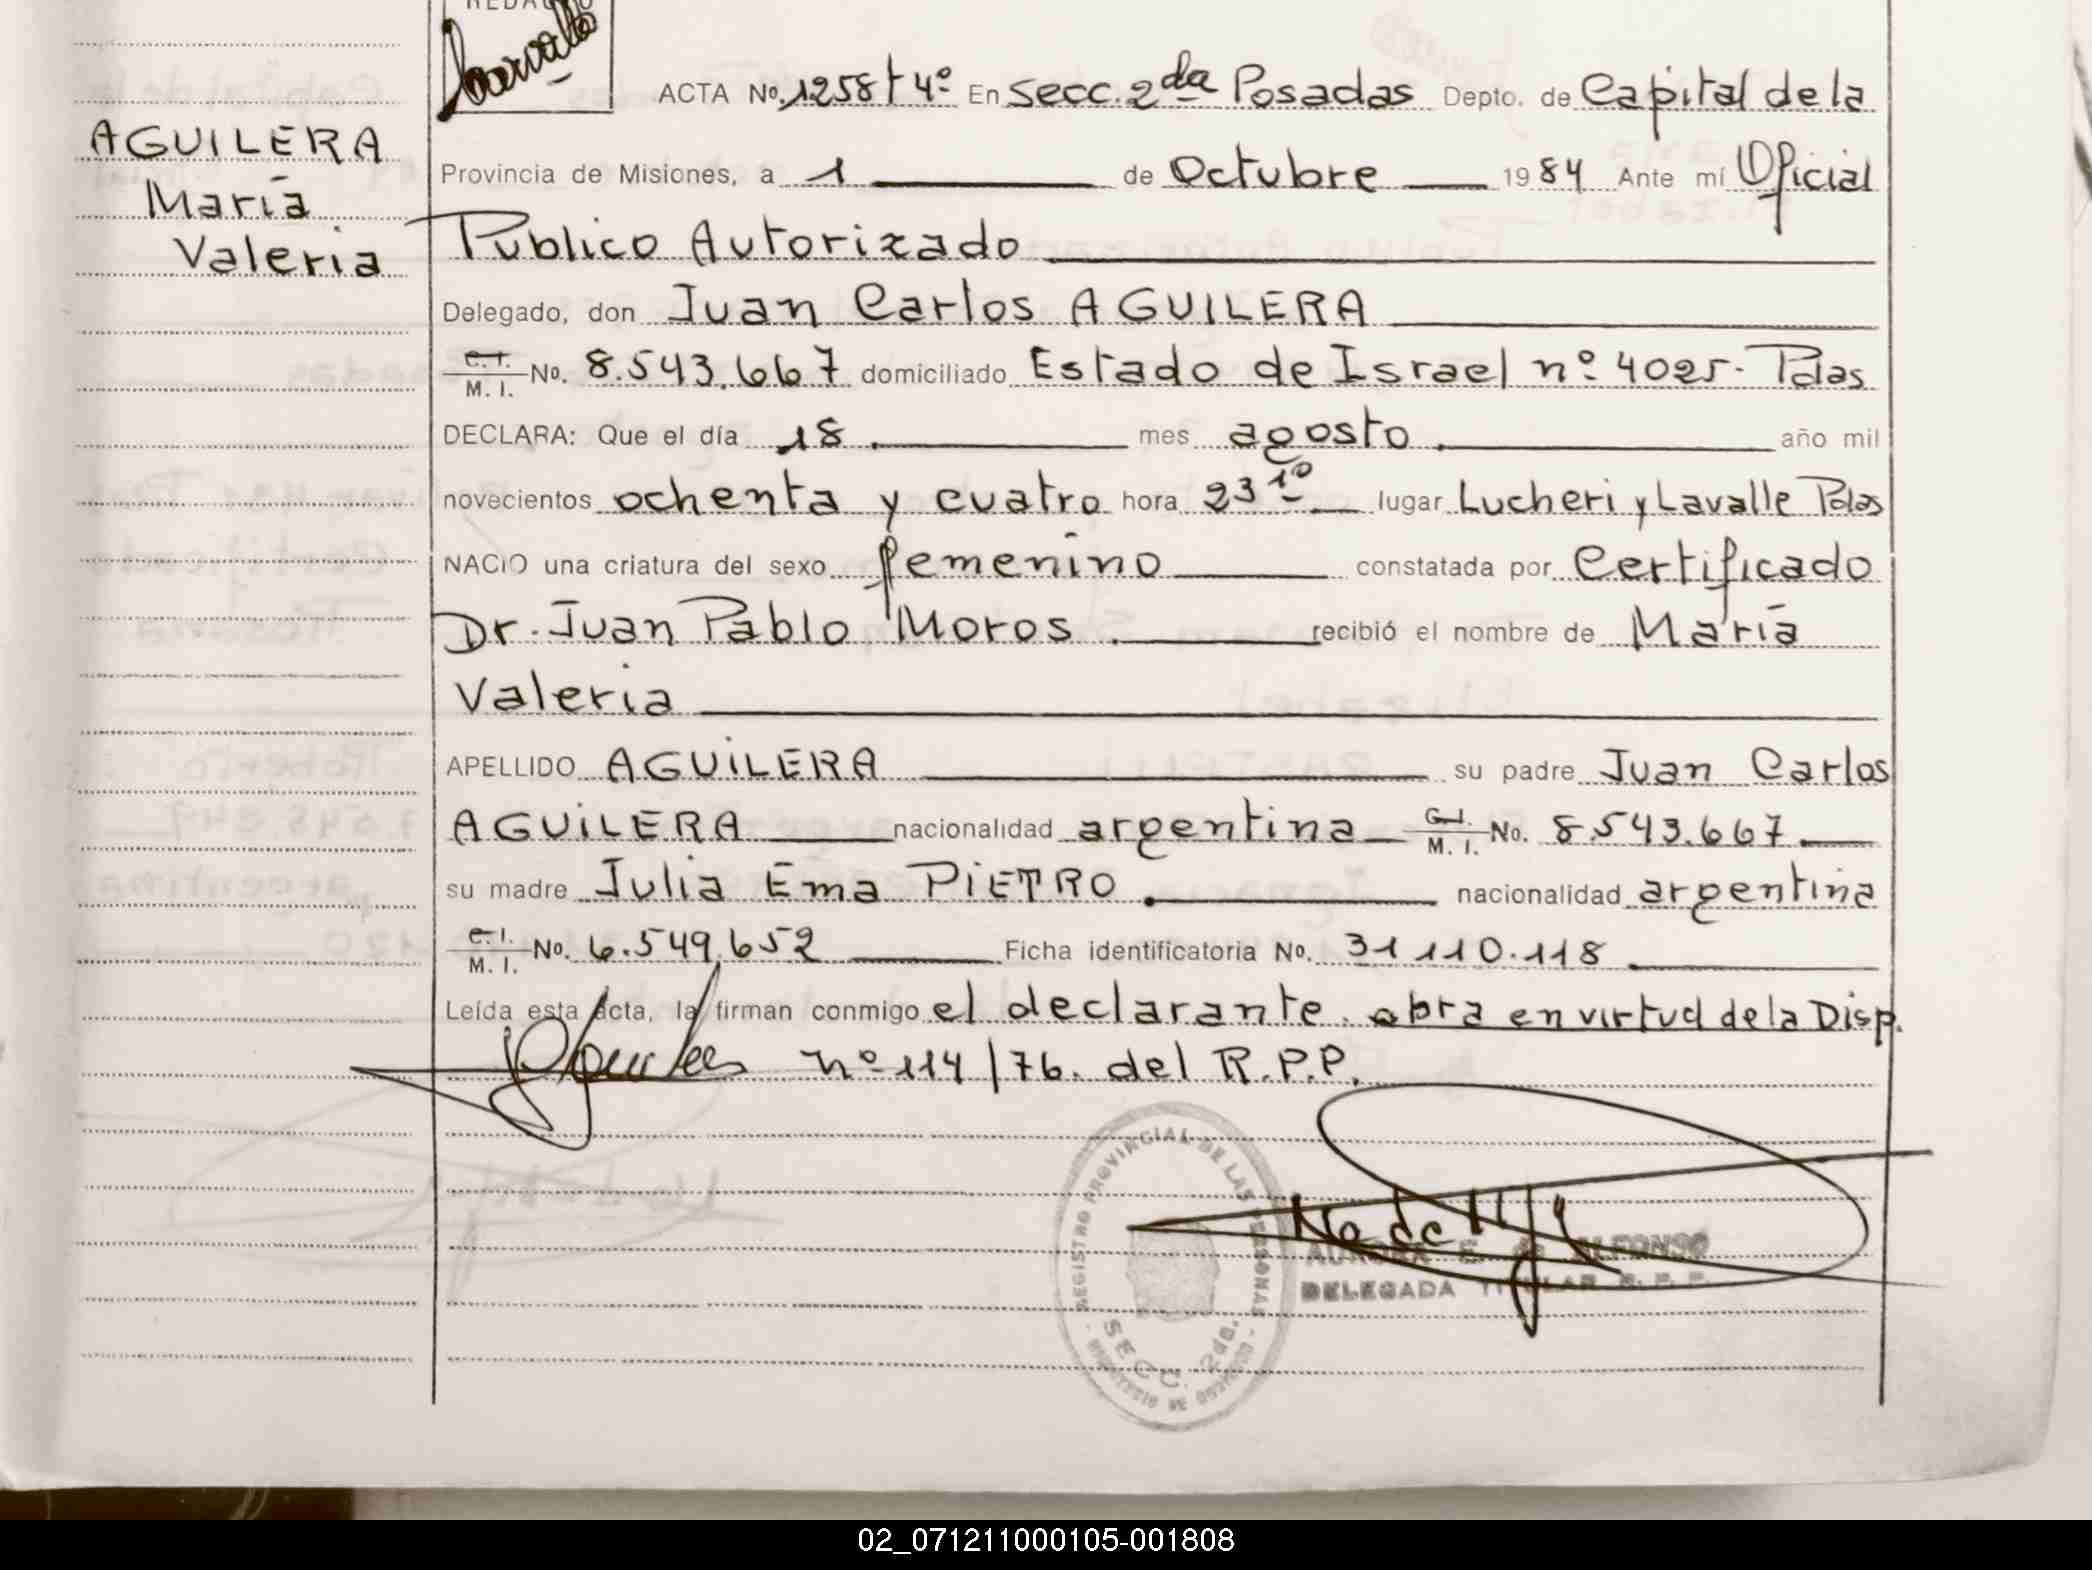 ACTA No. 1258 t 4º En secc. 2da Posadas Depto. de Capital de la
AGUILERA
María
Valeria
Provincia de Misiones, a 1 de Octubre 1984 Ante mí Oficial
Publico Autorizado
Delegado, don Juan Carlos AGUILERA
C.I. M. I. No. 8.543.667 domiciliado Estado de Israel nº 4025. Pdas
DECLARA: Que el día 18 mes agosto año mil
novecientos ochenta y cuatro hora 23 10 lugar Lucheri y Lavalle Pdas
NACIO una criatura del sexo femenino constatada por Certificado
Dr. Juan Pablo Moros. recibió el nombre de María
Valeria
APELLIDO AGUILERA su padre Juan Carlos
AGUILERA nacionalidad argentina C.I. M. I. No. 8.543.667
su madre Julia Ema PIETRO. nacionalidad argentina
C.I. M. I. No. 6.549.652 Ficha identificatoria No. 31 110.118
Leída esta acta, la firman conmigo el declarante. obra en virtud de la Disp.
nº 114/76. del R.P.P.
REGISTRO PROVINCIAL DE LAS PERSONAS
SECC. 2da.
AURORA E. de ALFONSO
DELEGADA TITULAR R. P. P.
02_071211000105-001808